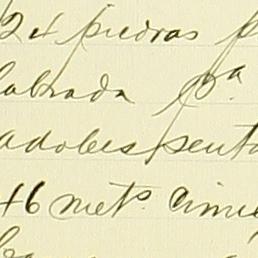 24 piedras p
labrada p.ª
adobes senta
46 mets. cimie